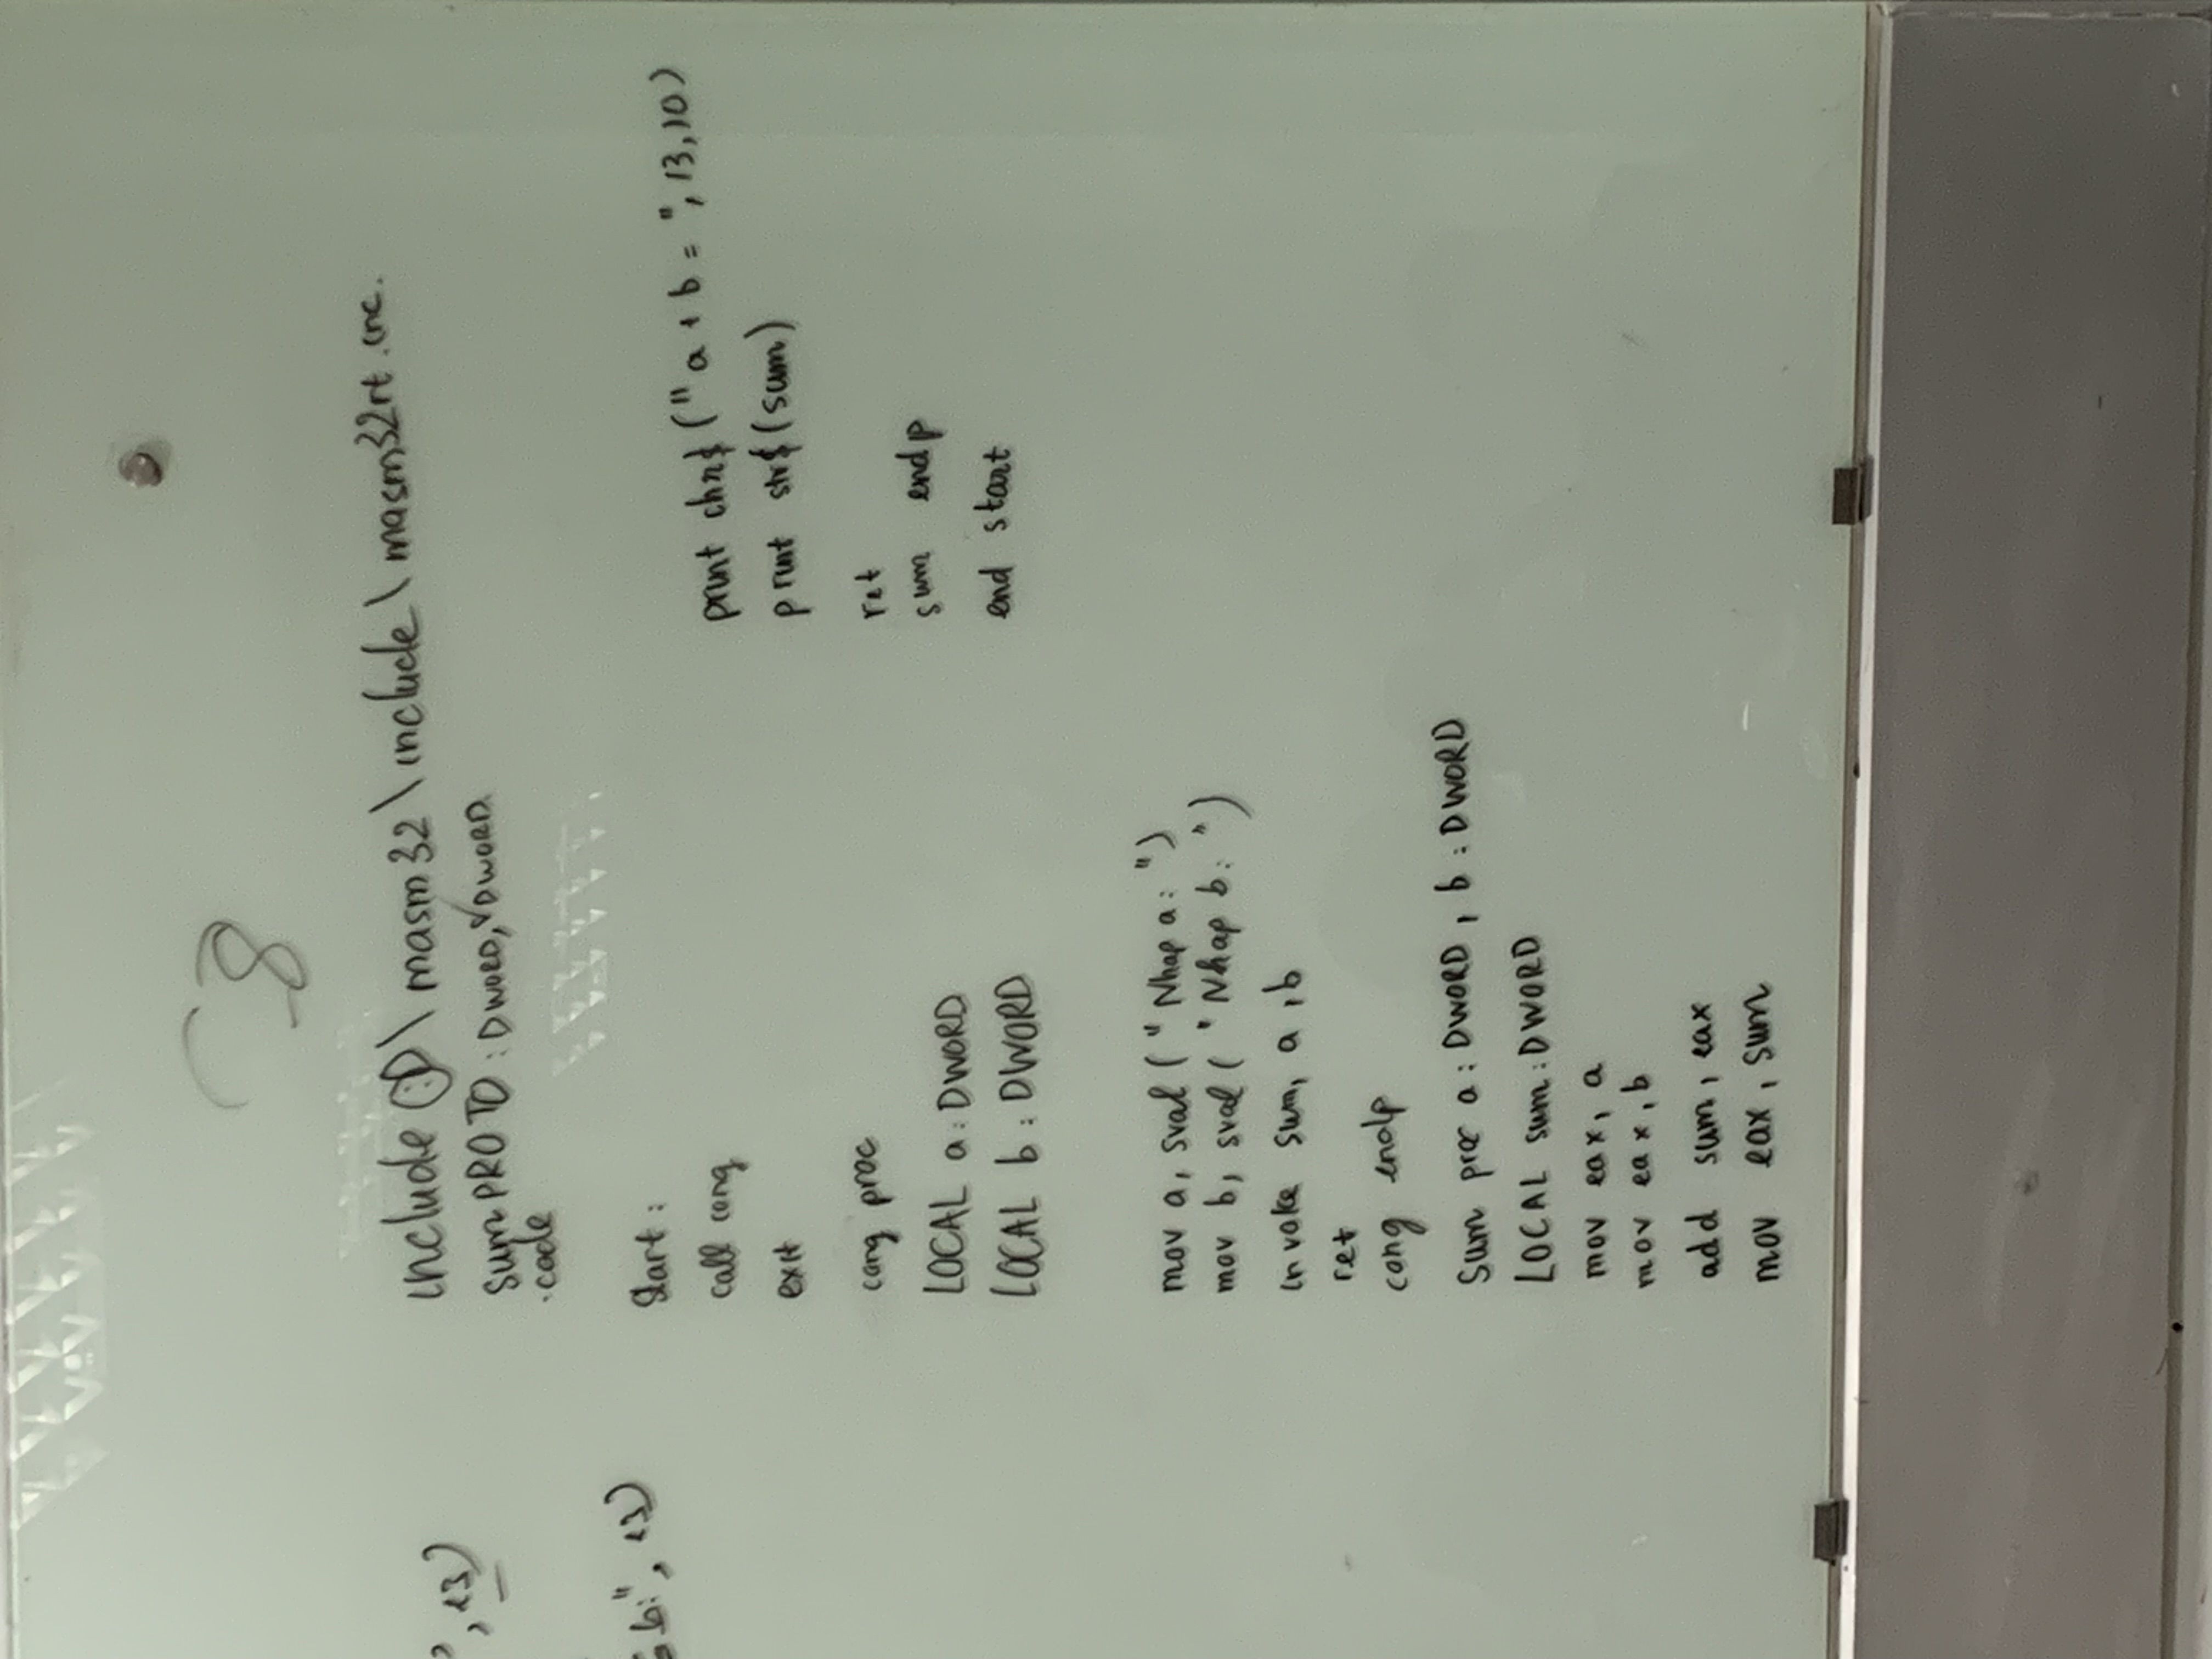 8
", 13)
b:", 13)
include :D\masm32\include\masm32rt.inc.
sum PROTO : DWORD, :DWORD
.code
Start :
call cong
exit
cong proc
LOCAL a : DWORD
LOCAL b : DWORD
mov a, sval ( " Nhap a : ")
mov b, sval ( " Nhap b : ")
invoke sum, a , b
ret
cong endp
Sum proc a : DWORD , b : DWORD
LOCAL sum : DWORD
mov eax, a
mov eax, b
add sum, eax
mov eax, sum
print chr$ (" a + b = ", 13,10)
print str$ (sum)
ret
sum endp
end start